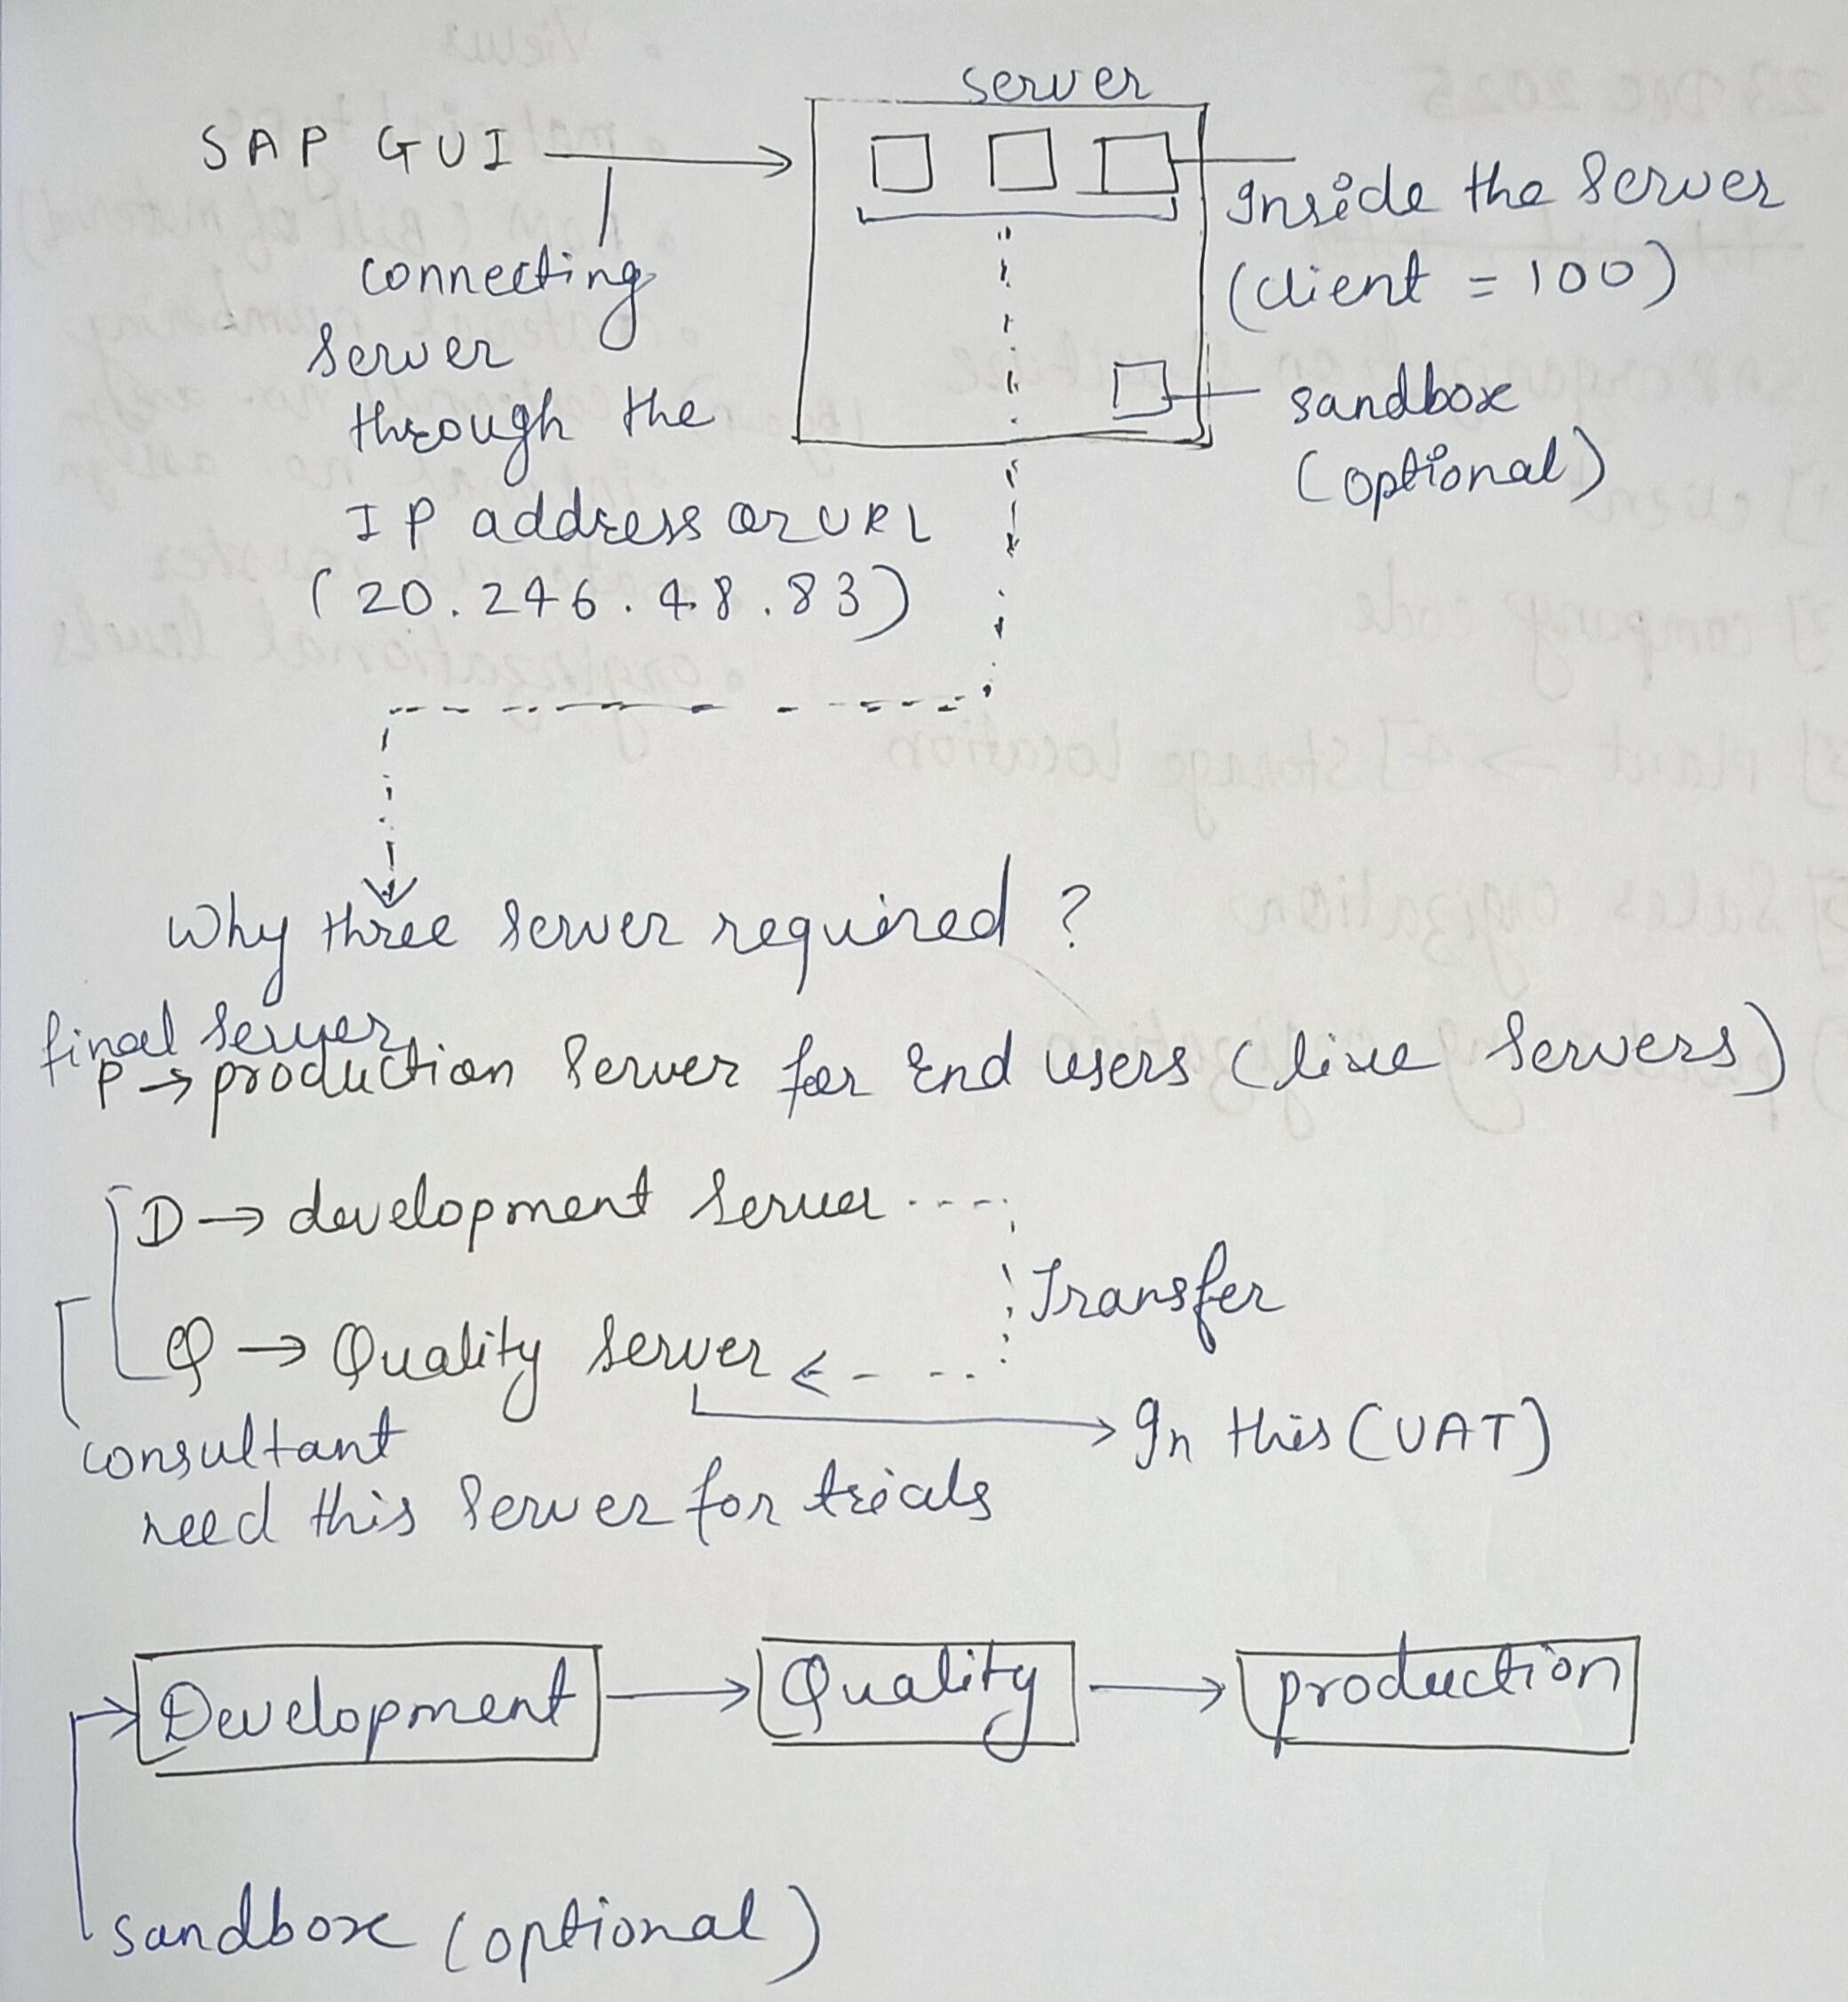 server
SAP GUI
Inside the server
(client = 100)
connecting
server
through the
IP address or URL
(20.246.48.83)
sandbox
(optional)
Why three server required ?
final server
P → production server for End users (live servers)
D → development server
Transfer
Q → Quality server
In this (UAT)
consultant
need this server for trials
Development → Quality → production
sandbox (optional)